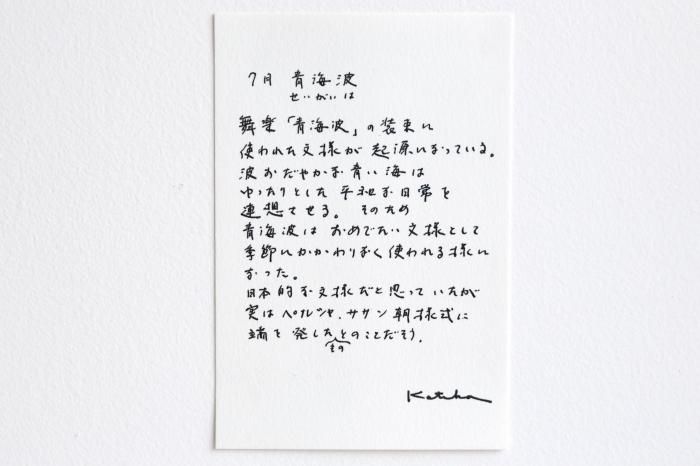 7月 青海波
せいがいは
舞楽「青海波」の装束に
使われた文様が起源になっている。
波おだやかな青い海は
ゆったりとした平和な日常を
連想させる。そのため
青海波はおめでたい文様として
季節にかかわりなく使われる様に
なった。
日本的な文様だと思っていたが
実はペルシャ、ササン朝様式に
端を発したとのことだそう。
もの